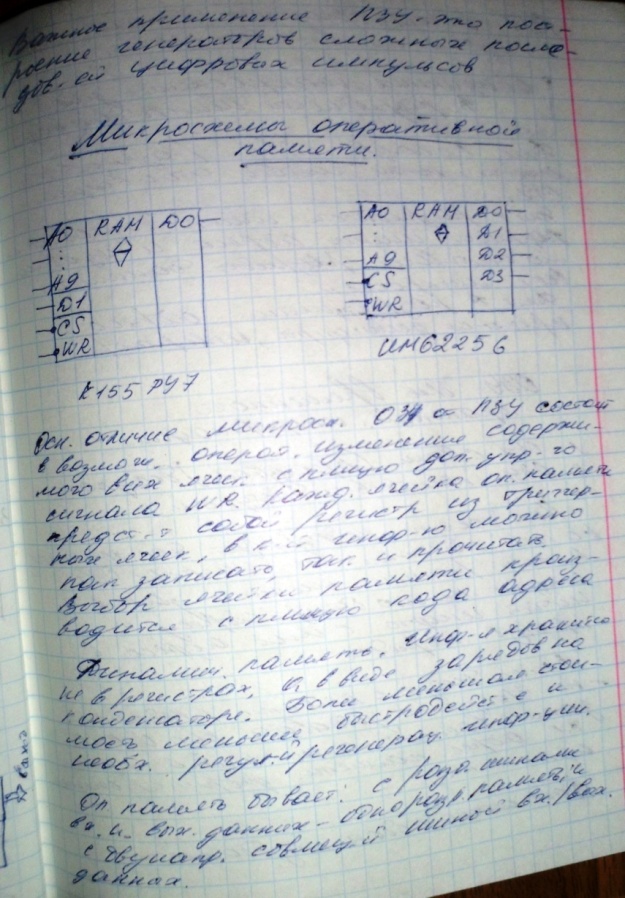 Важное применение ПЗУ - это пост-
роение генераторов сложных после-
дов-ей цифровых импульсов
Микросхемы оперативной
памяти.
A0 RAM D0
A9
D1
CS
WR
К155 РУ7
A0 RAM D0
D1
A9 D2
CS D3
WR
UM62256
Осн. отличие микросх. ОЗУ от ПЗУ состоит
в возможн. операт. изменение содержи-
мого всех ячеек с пмщью доп. упр-го
сигнала WR. Кажд. ячейка оп. памяти
предст-т собой регистр из триггер-
ных ячеек, в к-й инфор-ю можно
как записать, так и прочитать
Выбор ячейки памяти произ-
водится с пмщью кода адреса
Динамич. память. Инфор-я хранится
не в регистрах, а в виде зарядов на
конденсаторе. Более меньшая стои-
мость меньшее быстродейст-е и
необх. регул-й регенерац. инфор-ции.
Оп память бывает: с разд. шинами
вх. и вых. данных - одноразр. память и
с двунапр. совмещ-й шиной вх./вых.
данных.